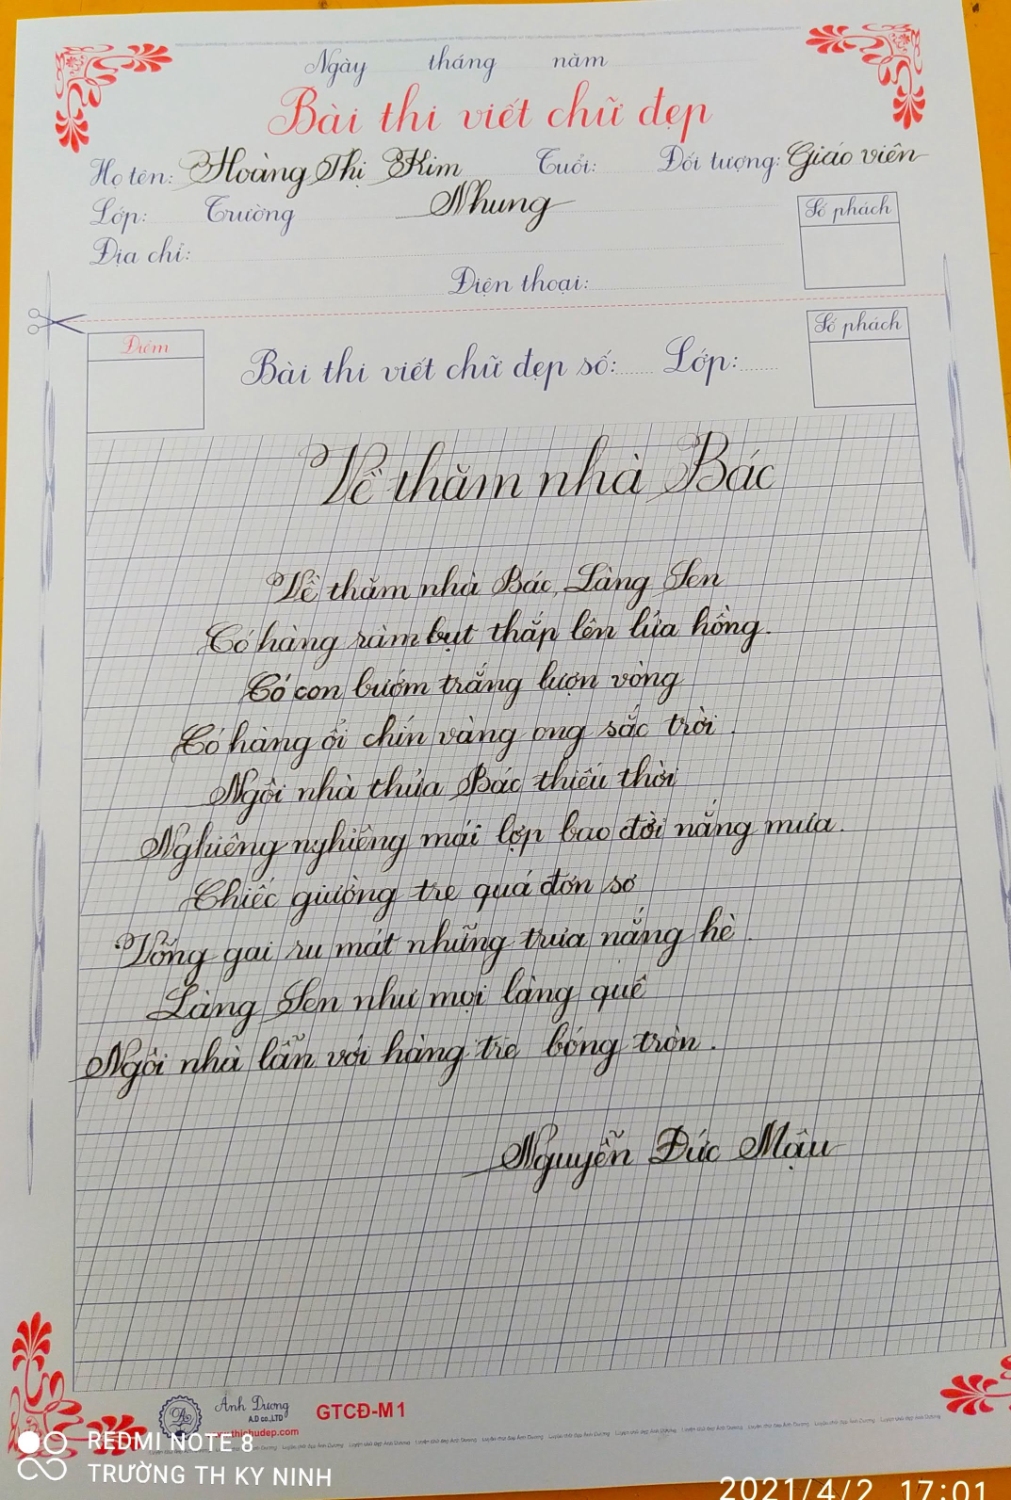 Ngày tháng năm
Bài thi viết chữ đẹp
Họ tên: Hoàng Thị Kim Tuổi: Đối tượng: Giáo viên
Lớp: Trường Nhung Số phách
Địa chỉ:
Điện thoại:
Điểm
Số phách
Bài thi viết chữ đẹp số: Lớp:
Về thăm nhà Bác
Về thăm nhà Bác, Làng Sen
Có hàng râm bụt thắp lên lửa hồng.
Có con bướm trắng lượn vòng
Có hàng ổi chín vàng ong sắc trời.
Ngôi nhà thửa Bác thiếu thời
Nghiêng nghiêng mái lợp bao đời nắng mưa.
Chiếc giường tre quá đơn sơ
Võng gai ru mát những trưa nắng hè.
Làng Sen như mọi làng quê
Ngôi nhà lẫn với hàng tre bóng tròn.
Nguyễn Đức Mậu
Ánh Dương
A.D co.,LTD
GTCĐ-M1
thichudep.com
REDMI NOTE 8
TRƯỜNG TH KỲ NINH
2021/4/2 17:01